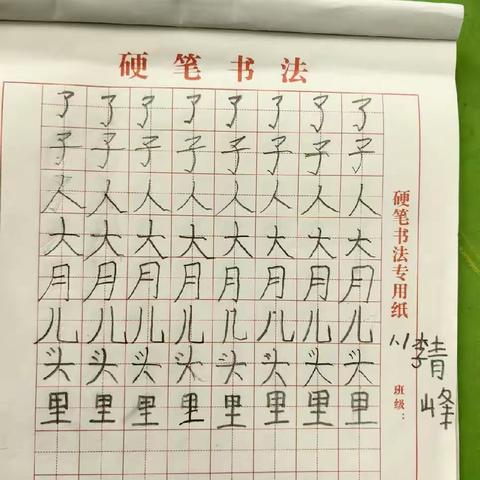 硬笔书法
了了了了了了了了
子子子子子子子子
人人人人人人人人
大大大大大大大大
月月月月月月月月
儿儿儿儿儿儿儿儿
头头头头头头头头
里里里里里里里里
硬笔书法专用纸
班级：
李青峰